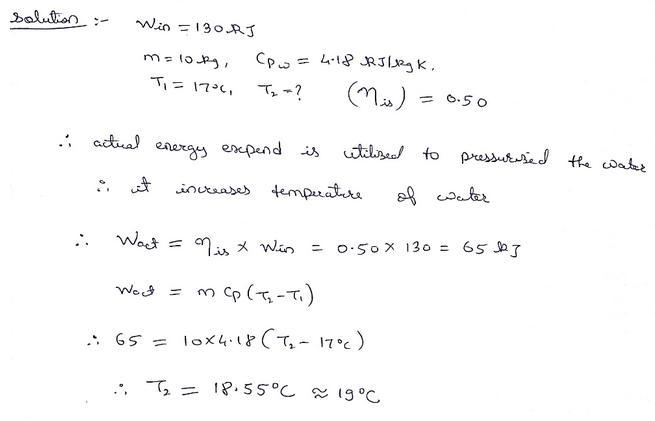 Solution :- Win = 130 KJ
m = 10 kg, Cpω = 4.18 KJ/kg K.
T₁ = 17°C, T₂ = ? (ηis) = 0.50
∴ actual energy expend is utilized to pressurised the water
∴ it increases temperature of water
∴ Wact = ηis × Win = 0.50 × 130 = 65 KJ
Wact = m Cp (T₂ - T₁)
∴ 65 = 10 × 4.18 (T₂ - 17°C)
∴ T₂ = 18.55°C ≈ 19°C